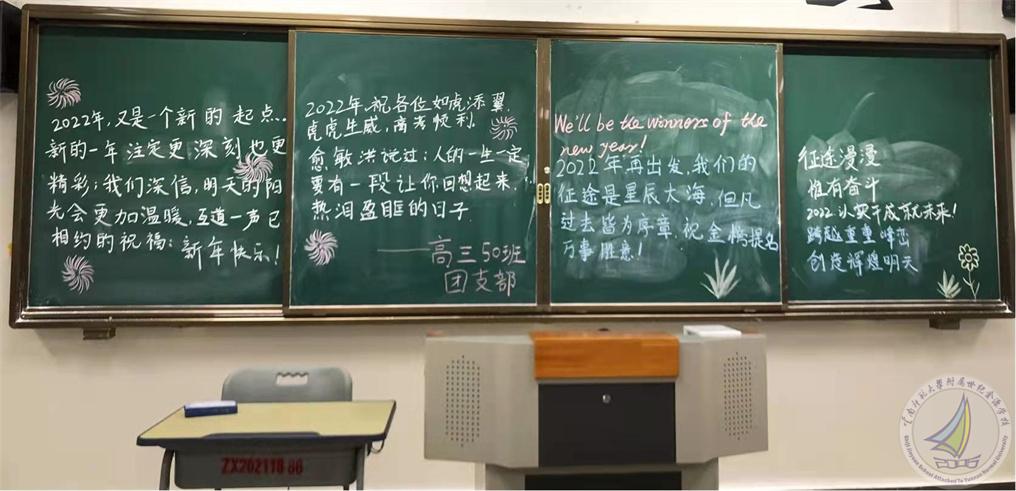 2022年,又是一个新的起点..
新的一年注定更深刻也更
精彩;我们深信,明天的阳
光会更加温暖,互道一声已
相约的祝福:新年快乐!
2022年,祝各位如虎添翼,
虎虎生威,高考顺利.
愈敏洪说过:人的一生一定
要有一段让你回想起来,
热泪盈眶的日子.
——高三50班
团支部
We'll be the winners of the
new year!
2022年再出发,我们的
征途是星辰大海,但凡
过去皆为序章.祝金榜提名
万事胜意!
征途漫漫
惟有奋斗
2022以实干成就未来!
跨越重重峰峦
创造辉煌明天
ZX202118 86
云南师范大學附属世纪金源学校
Shiji Jinyuan School Attached To Yunnan Normal University